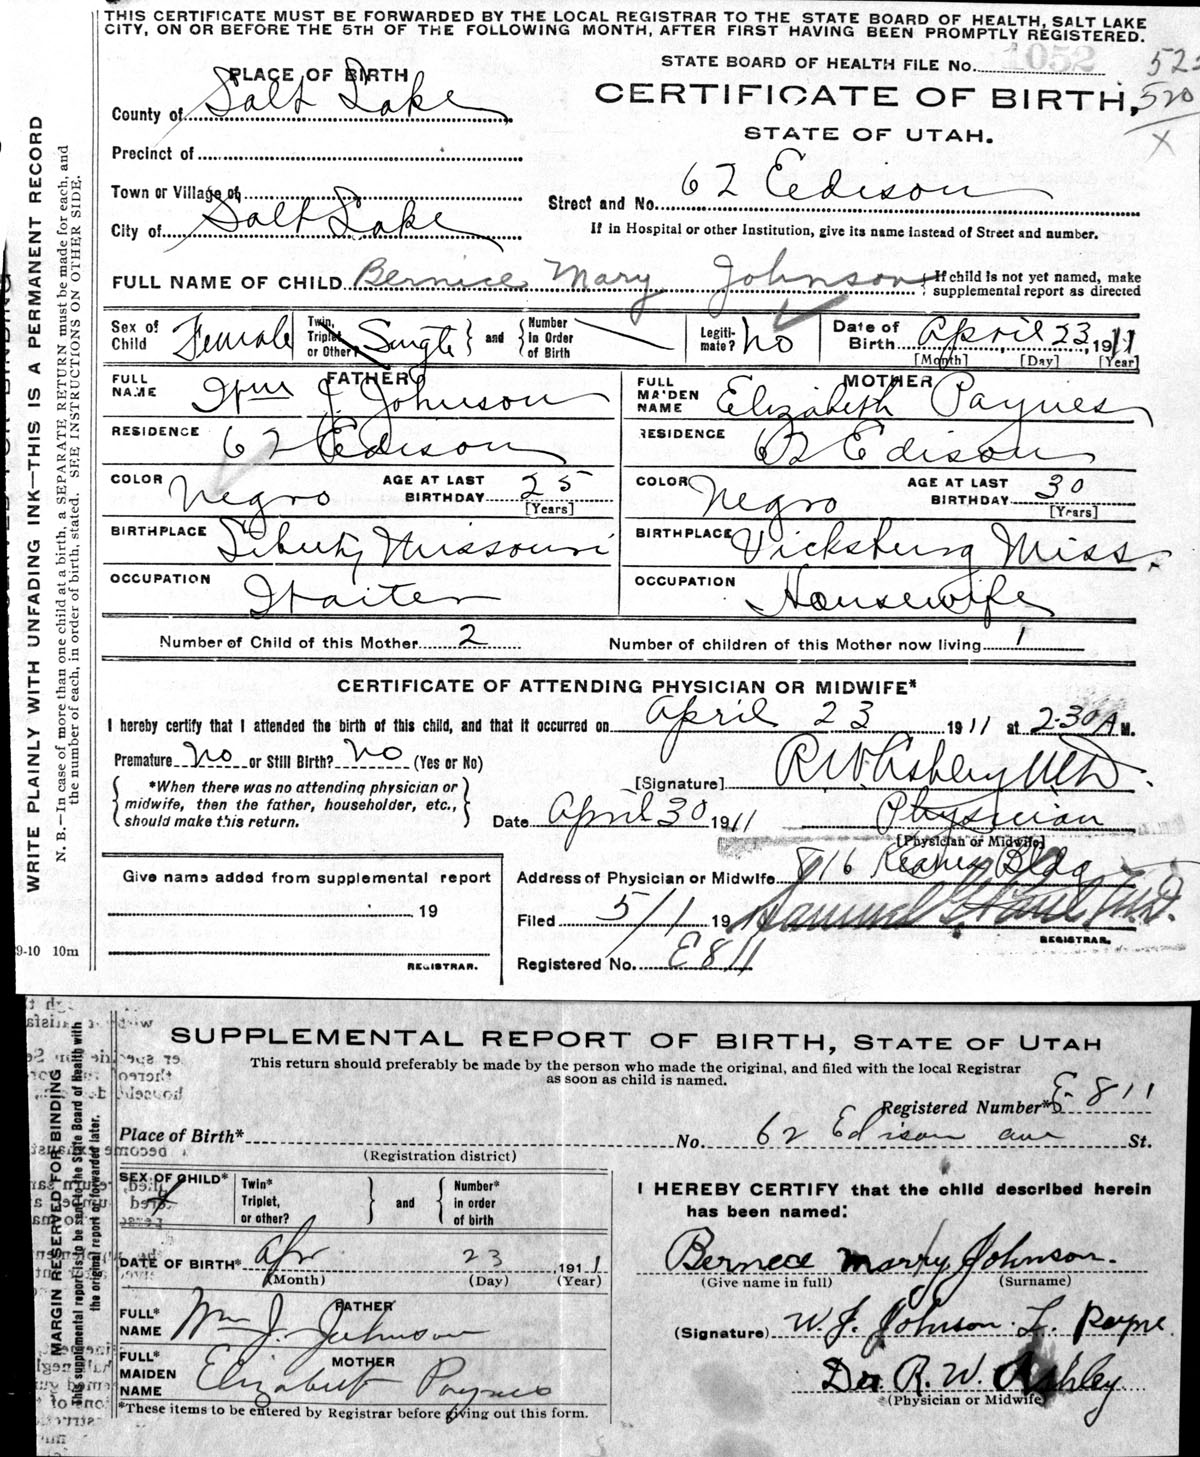 THIS CERTIFICATE MUST BE FORWARDED BY THE LOCAL REGISTRAR TO THE STATE BOARD OF HEALTH, SALT LAKE
CITY, ON OR BEFORE THE 5TH OF THE FOLLOWING MONTH, AFTER FIRST HAVING BEEN PROMPTLY REGISTERED.
WRITE PLAINLY WITH UNFADING INK—THIS IS A PERMANENT RECORD
N. B.—In case of more than one child at a birth, a SEPARATE RETURN must be made for each, and
the number of each, in order of birth, stated. SEE INSTRUCTIONS ON OTHER SIDE.
STATE BOARD OF HEALTH FILE No. 1052
520
X
PLACE OF BIRTH
CERTIFICATE OF BIRTH,
STATE OF UTAH.
County of Salt Lake
Precinct of
Town or Village of
City of Salt Lake
Street and No. 62 Edison
If in Hospital or other Institution, give its name instead of Street and number.
FULL NAME OF CHILD Bernice Mary Johnson
If child is not yet named, make
supplemental report as directed
Sex of Child Female
Twin, Triplet, or Other? Single and Number in Order of Birth
Legiti-mate? no
Date of Birth April 23, 1911
[Month] [Day] [Year]
FATHER
FULL NAME Wm J. Johnson
RESIDENCE 62 Edison
COLOR Negro AGE AT LAST BIRTHDAY 25
[Years]
BIRTHPLACE Liberty Missouri
OCCUPATION Waiter
MOTHER
FULL MAIDEN NAME Elizabeth Paynes
RESIDENCE 62 Edison
COLOR Negro AGE AT LAST BIRTHDAY 30
[Years]
BIRTHPLACE Vicksburg Miss.
OCCUPATION Housewife
Number of Child of this Mother 2 Number of children of this Mother now living 1
CERTIFICATE OF ATTENDING PHYSICIAN OR MIDWIFE*
I hereby certify that I attended the birth of this child, and that it occurred on April 23 1911 at 2-30 A M.
Premature No or Still Birth? No (Yes or No)
*When there was no attending physician or
midwife, then the father, householder, etc.,
should make this return.
[Signature] R W Ashley MD.
Date April 30 1911 Physician
[Physician or Midwife]
Address of Physician or Midwife 816 Kearns Bldg
Give name added from supplemental report
19
REGISTRAR.
Filed 5/1 19
REGISTRAR.
Registered No. E811
9-10 10m
SUPPLEMENTAL REPORT OF BIRTH, STATE OF UTAH
This return should preferably be made by the person who made the original, and filed with the local Registrar
as soon as child is named.
MARGIN RESERVED FOR BINDING
This supplemental report is to be sent to the State Board of Health with
the original report or forwarded later.
Registered Number* E-811
Place of Birth* No. 62 Edison ave St.
(Registration district)
SEX OF CHILD*
Twin* Triplet, or other? and Number* in order of birth
DATE OF BIRTH* Apr 23, 1911
(Month) (Day) (Year)
FATHER
FULL* NAME Wm J. Johnson
MOTHER
FULL* MAIDEN NAME Elizabeth Paynes
*These items to be entered by Registrar before giving out this form.
I HEREBY CERTIFY that the child described herein
has been named:
Bernece Marry Johnson.
(Give name in full) (Surname)
(Signature) W. J. Johnson. L. Payne
Dr R. W. Ashley
(Physician or Midwife)